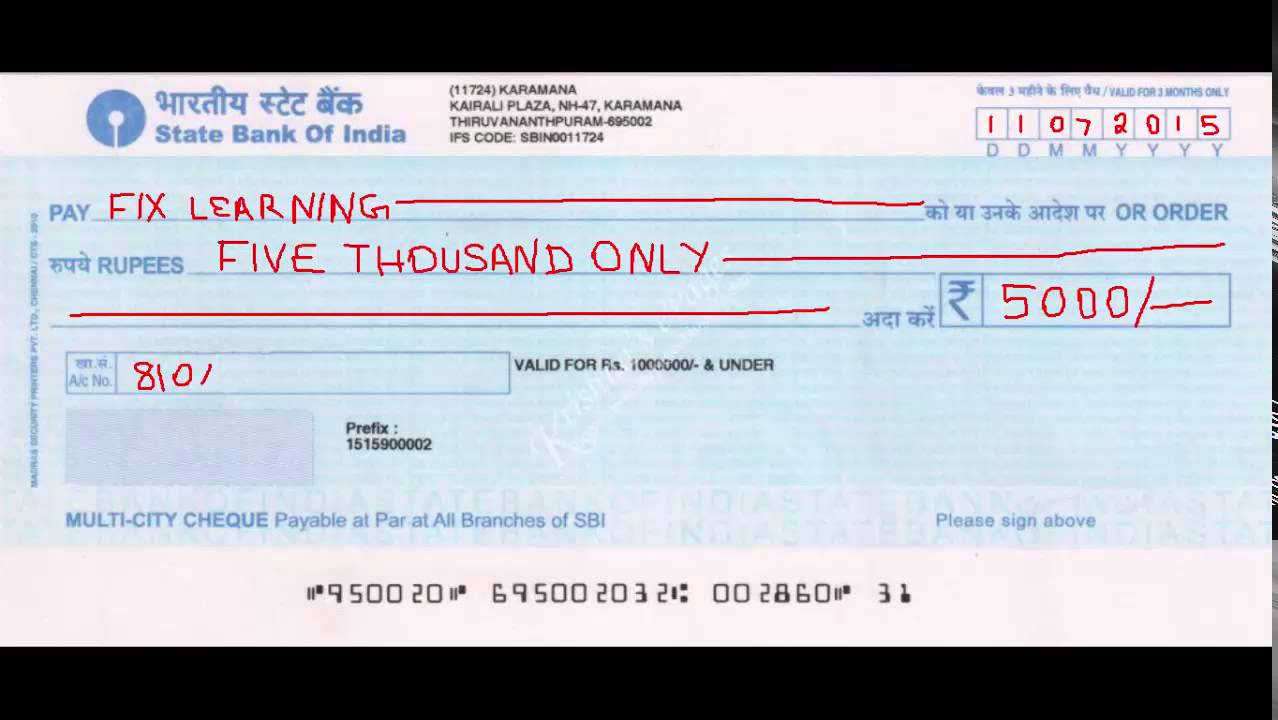 भारतीय स्टेट बैंक
State Bank Of India
(11724) KARAMANA
KAIRALI PLAZA, NH-47, KARAMANA
THIRUVANANTHPURAM-695002
IFS CODE: SBIN0011724
केवल 3 महीने के लिए वैध / VALID FOR 3 MONTHS ONLY
1 1 0 7 2 0 1 5
D D M M Y Y Y Y
PAY FIX LEARNING को या उनके आदेश पर OR ORDER
रुपये RUPEES FIVE THOUSAND ONLY
अदा करें ₹ 5000/-
खा.सं.
A/c No. 810/
VALID FOR Rs. 1000000/- & UNDER
Prefix :
1515900002
MADRAS SECURITY PRINTERS PVT. LTD., CHENNAI / CTS - 2010
MULTI-CITY CHEQUE Payable at Par at All Branches of SBI
Please sign above
⑈950020⑈ 695002032⑆ 002860⑈ 31